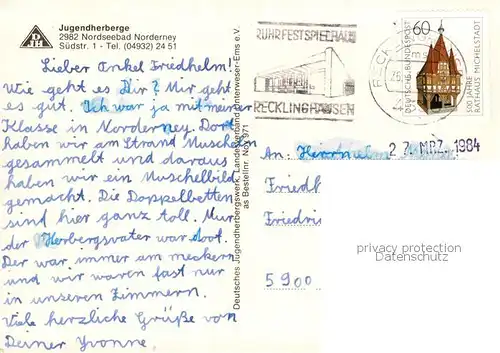 Jugendherberge
2982 Nordseebad Norderney
Südstr. 1 - Tel. (04932) 24 51
Lieber Onkel Friedhelm!
Wie geht es Dir? Mir geht
es gut. Ich war ja mit meiner
Klasse in Norderney. Dort
haben wir am Strand Muscheln
gesammelt und daraus
haben wir ein Muschelbild
gemacht. Die Doppelbetten
sind hier ganz toll. Nur
der Herbergsvater war doof.
Der war immer am meckern
und wir waren fast nur
in unseren Zimmern.
Viele herzliche Grüße von
Deiner Yvonne.
Deutsches Jugendherbergswerk, Landesverband Unterweser-Ems e.V.
Bestellnr.
RUHRFESTSPIELHAUS
RECKLINGHAUSEN
60
DEUTSCHE BUNDESPOST
500 JAHRE
RATHAUS MICHELSTADT
27. MRZ. 1984
An:
Friedh
Friedri
5900
privacy protection
Datenschutz